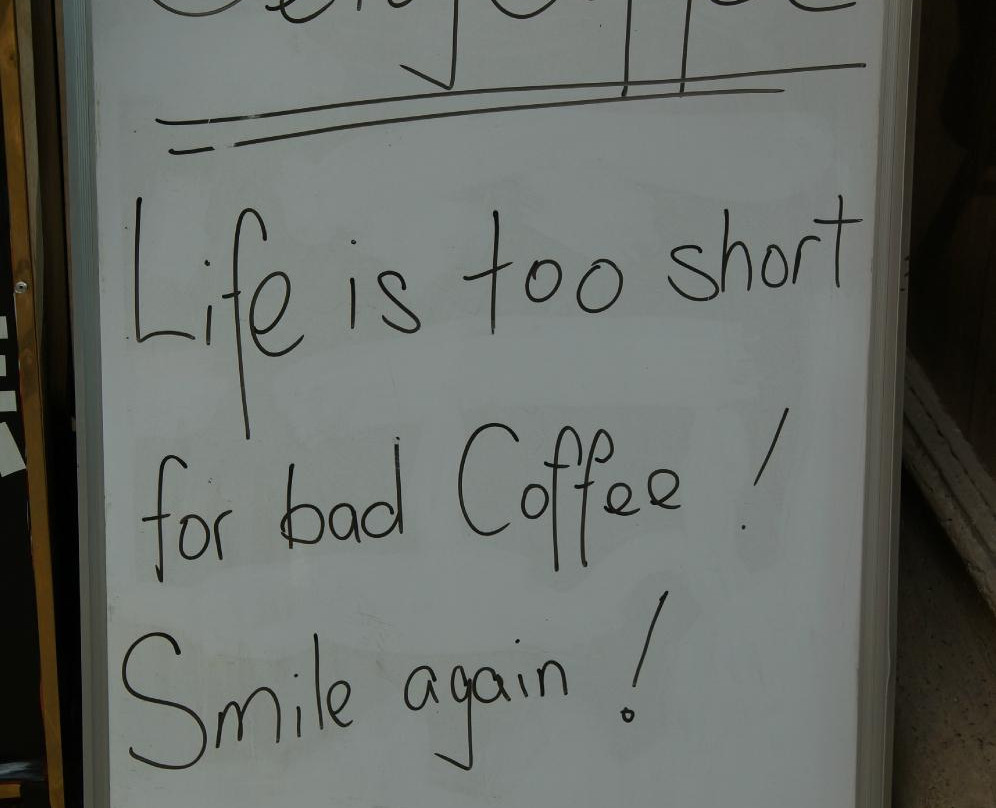 Life is too short
for bad Coffee!
Smile again!